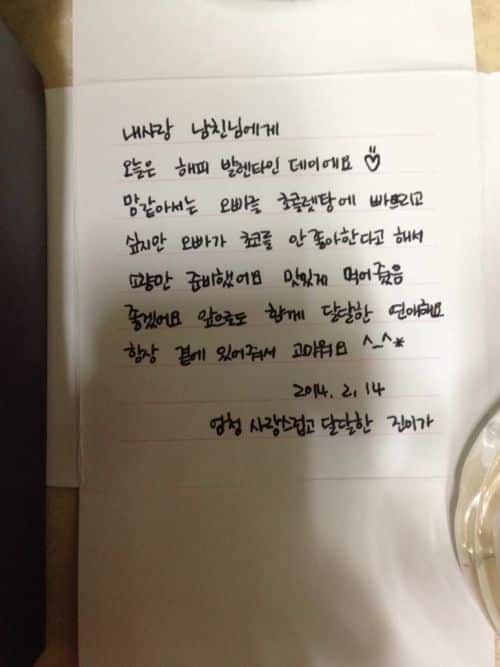 내사랑 남친님에게
오늘은 해피 발렌타인 데이에요 ♡
맘같아서는 오빠를 초콜렛탕에 빠뜨리고
싶지만 오빠가 초코를 안좋아한다고 해서
요만 준비했어요 맛있게 먹어줬음
좋겠어요 앞으로도 함께 달달한 연애해요
항상 곁에 있어줘서 고마워요 ^_^*
2014. 2. 14
엄청 사랑스럽고 달달한 진이가